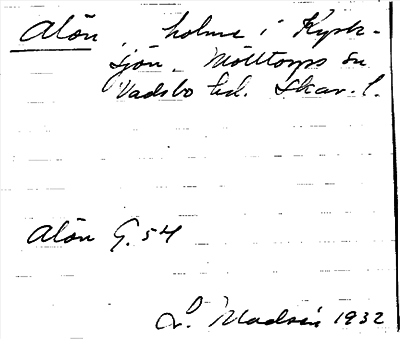 Alön, holme i Kyrk-
sjön, Mölltorps sn
Vadsbo hd. Skar. l.
Alön G. 54
L. Madsén 1932